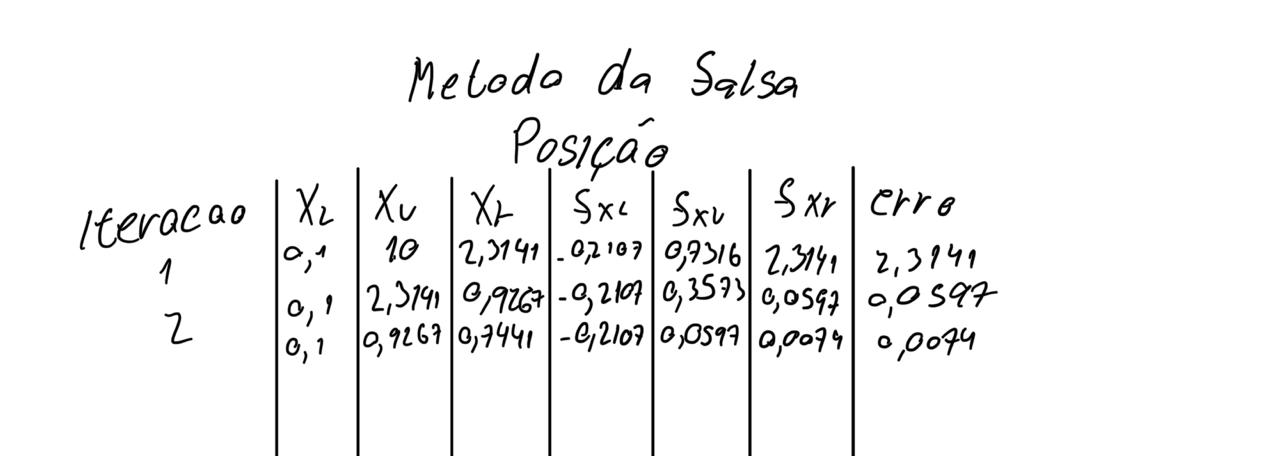 Metodo da Salsa
Posição
Iteracao XL XU Xr Sxl Sxu Sxr erro
1 0,1 10 2,3141 -0,2107 0,7316 2,3141 2,3141
2 0,1 2,3141 0,9267 -0,2107 0,3573 0,0597 0,0597
0,1 0,9267 0,7441 -0,2107 0,0597 0,0074 0,0074